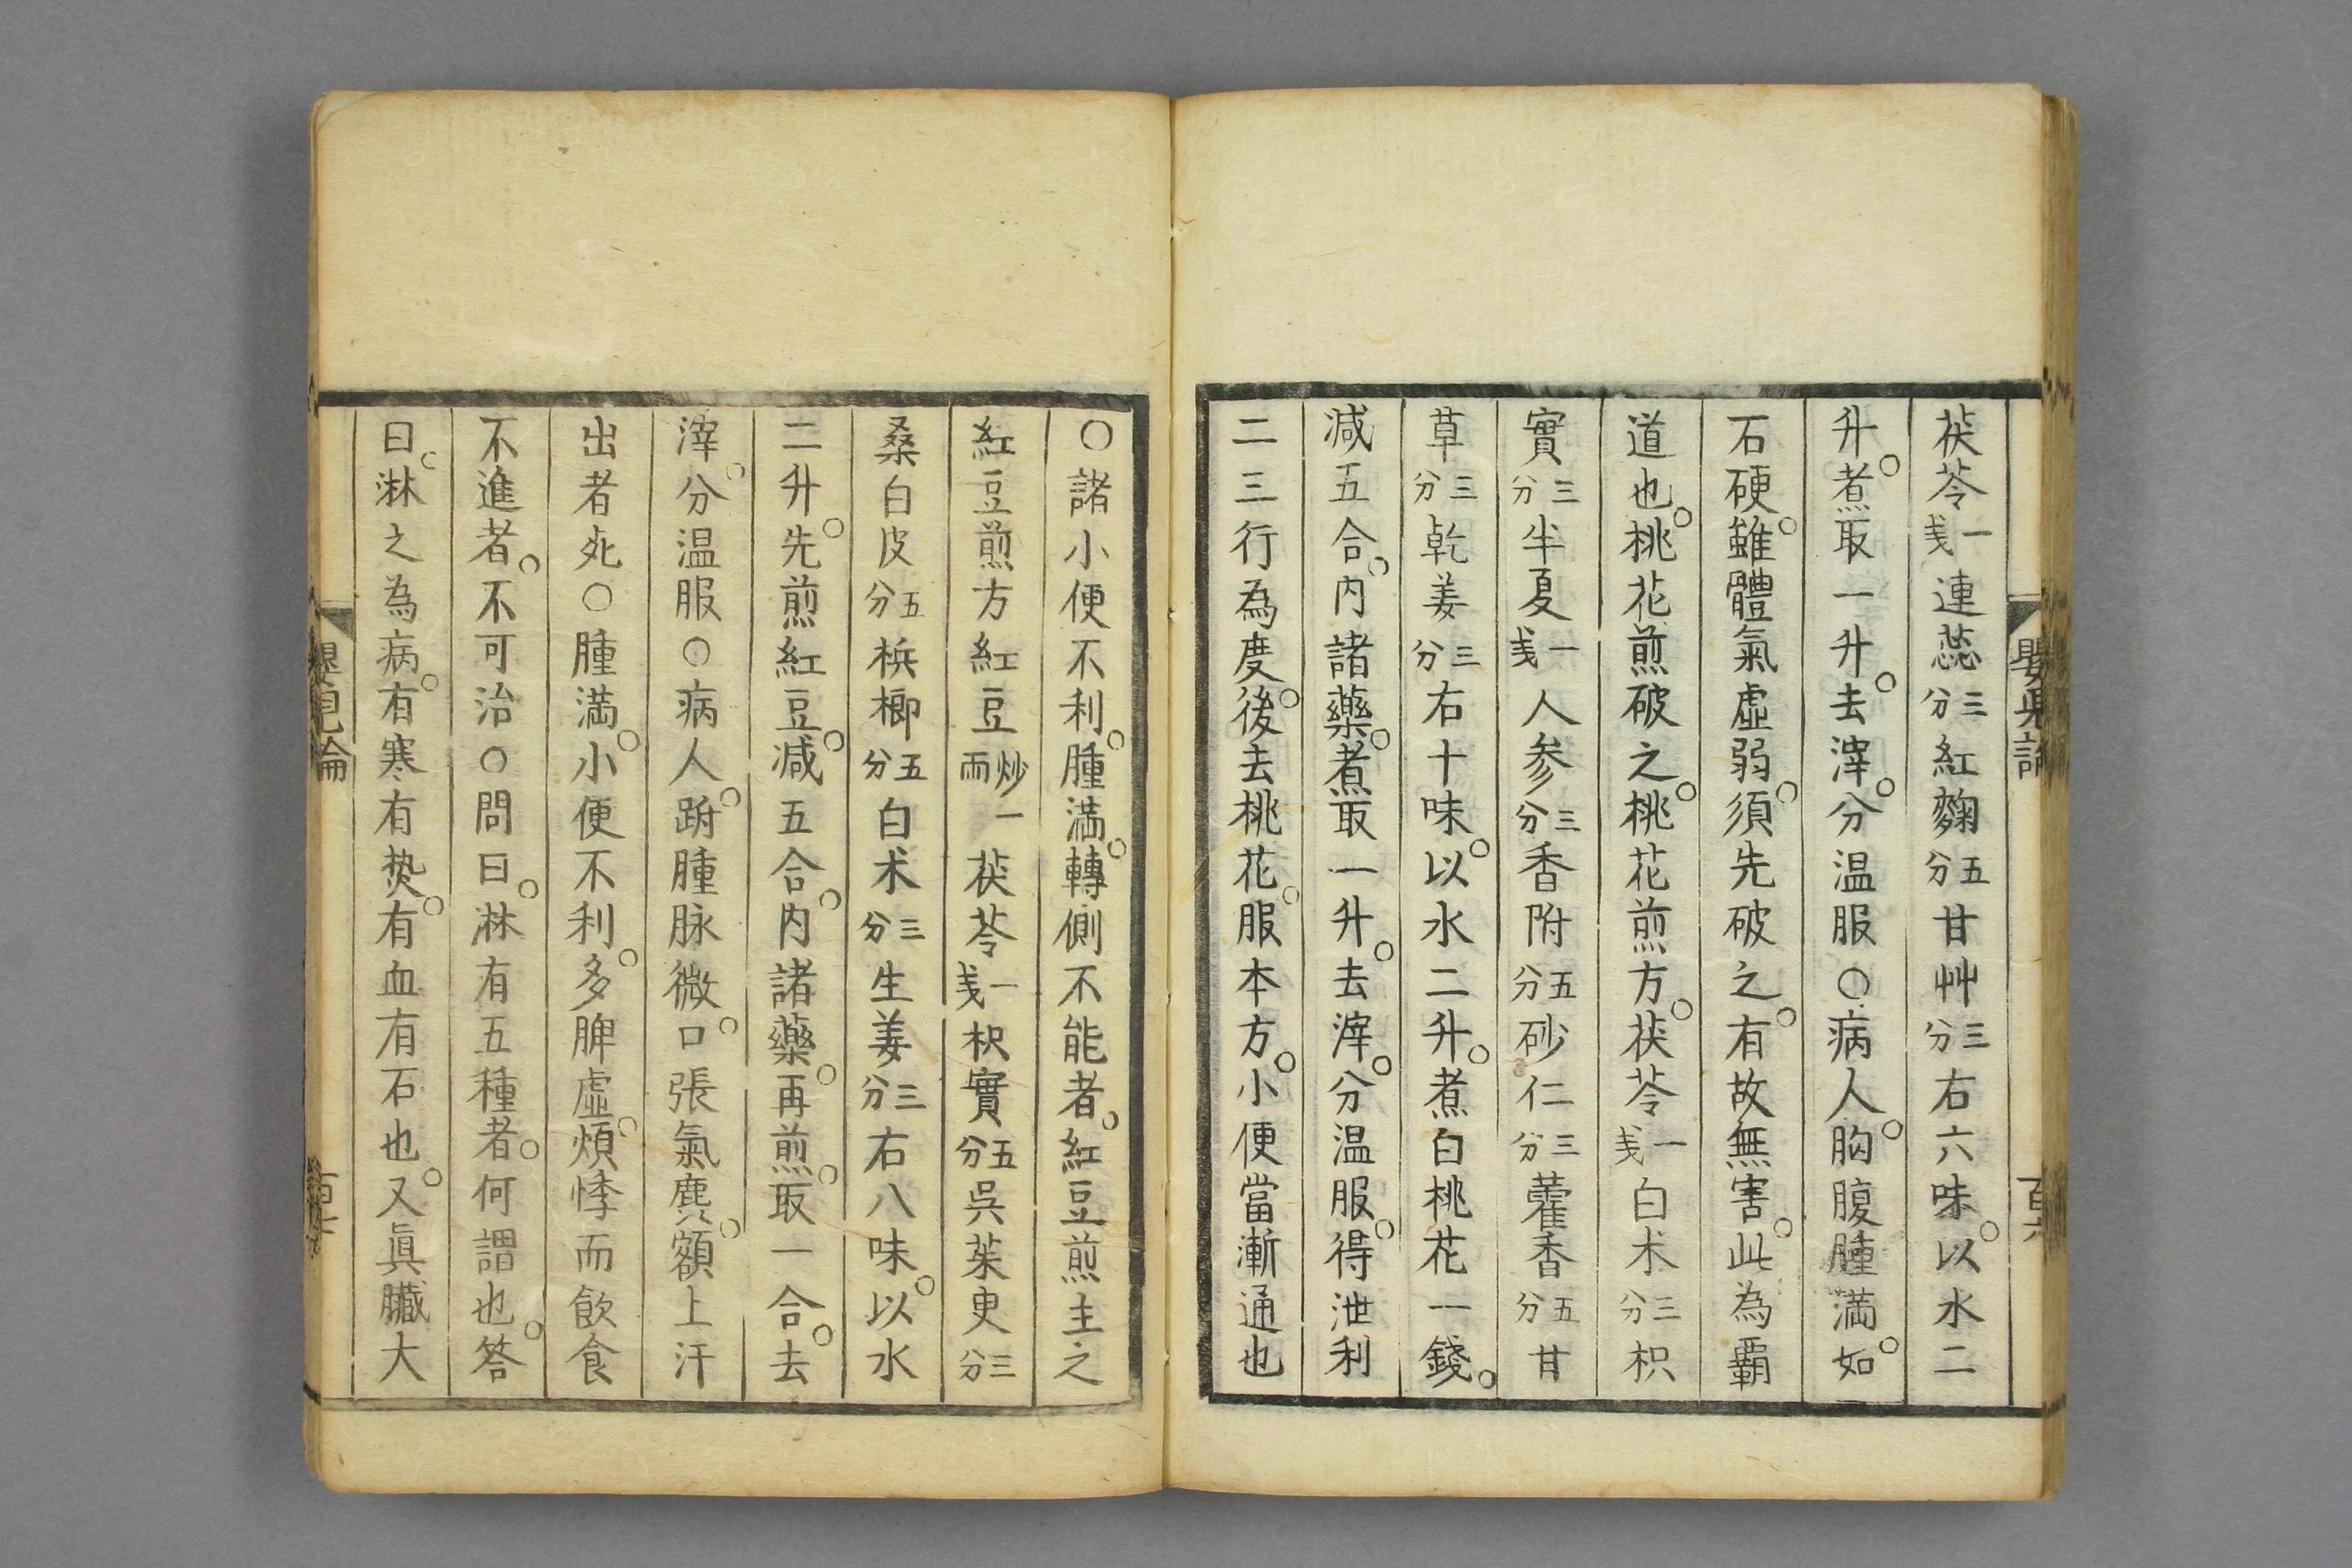 茯苓一戔連蕊三分紅麴五分甘艸三分右六味以水二
升煮取一升去滓分温服○病人胸腹腫満如
石硬雖體氣虚弱須先破之有故無害此為覇
道也桃花煎破之桃花煎方茯苓一戔白术三分枳
實三分半夏一戔人参三分香附五分砂仁三分藿香五分甘
草三分乾姜三分右十味以水二升煮白桃花一錢
減五合内諸藥煮取一升去滓分温服得泄利
二三行為度後去桃花服本方小便當漸通也
○諸小便不利腫満轉側不能者紅豆煎主之
紅豆煎方紅豆炒一兩茯苓一戔枳實五分吳茱更三分
桑白皮五分梹榔五分白术三分生姜三分右八味以水
二升先煎紅豆減五合内諸藥再煎取一合去
滓分温服○病人跗腫脉微口張氣麄額上汗
出者死○腫満小便不利多脾虚煩悸而飲食
不進者不可治○問曰淋有五種者何謂也答
曰淋之為病有寒有热有血有石也又眞臟大